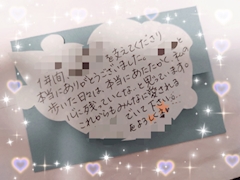 1年間 を支えてくださり
本当にありがとうございました。 と
歩いた日々は、本当にあたたかく、私の
心に残っていくな、と思っています。
これからもみんなに愛される
でいて下さい。
より